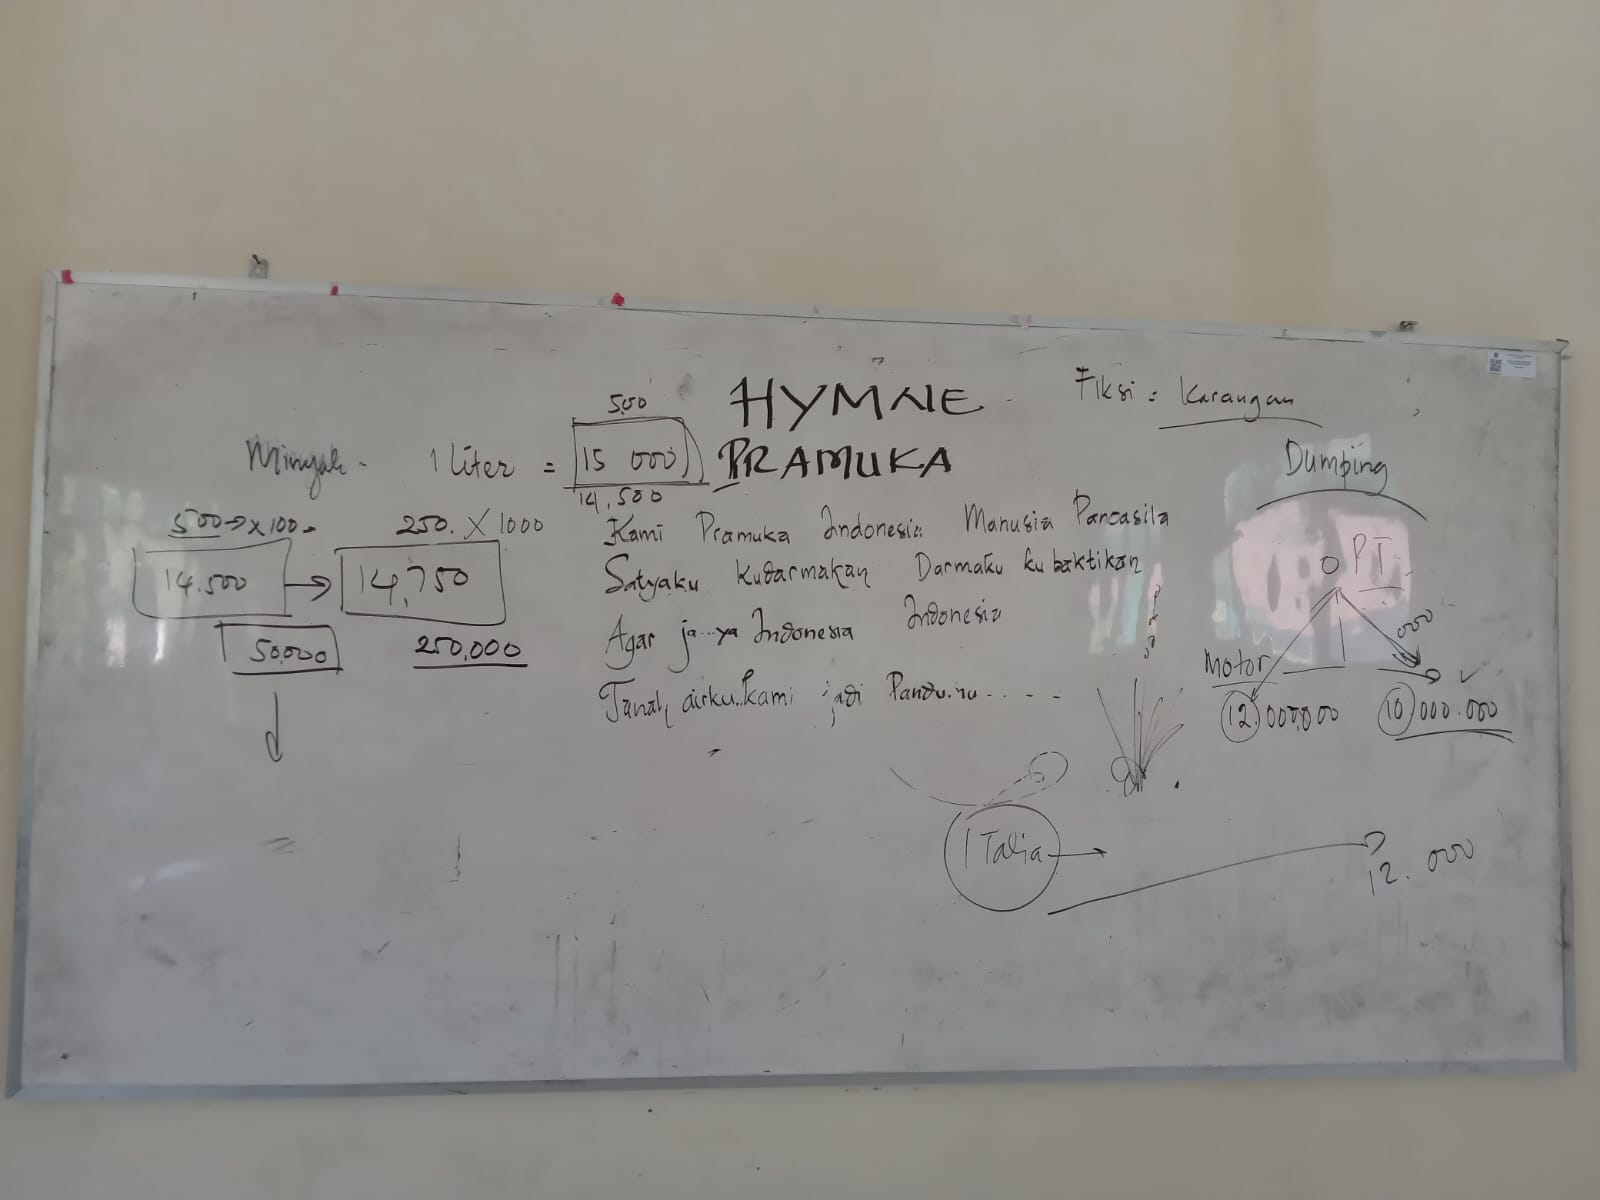 HYMNE
PRAMUKA
Kami Pramuka Indonesia Manusia Pancasila
Satyaku Kudarmakan Darmaku ku baktikan
Agar ja...ya Indonesia Indonesia
Tanah airku..kami jadi Pandumu....
Minyak 1 liter = 15 000
500
14,500
500 → x 100
250. X 1000
14.500 → 14,750
50,000
250,000
Fiksi = Karangan
Dumping
PT
Motor
000
12.000,000
10.000.000
Italia
12.000